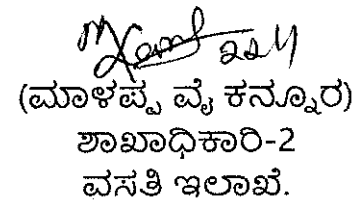 22/4
(ಮಾಳಪ್ಪ ವೈ ಕನ್ನೂರ)
ಶಾಖಾಧಿಕಾರಿ-2
ವಸತಿ ಇಲಾಖೆ.